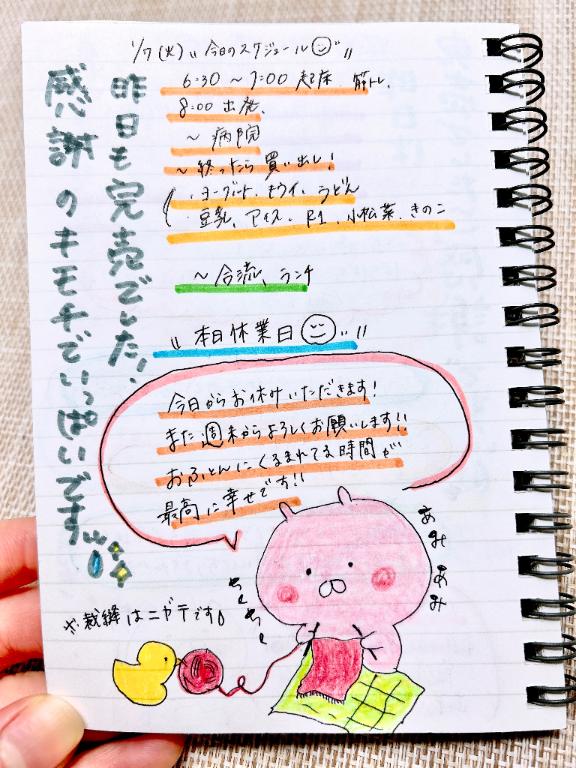 1/7(火)"今日のスケジュール"
6:30～7:00 起床 筋トレ、
8:00 出発、
～病院
～終ったら買い出し!
・ヨーグルト、キウイ、うどん
・豆乳、アイス、R1、小松菜、きのこ
～合流、ランチ
"本日休業日"
昨日も完売でした!、
感謝のキモチでいっぱいです
今日からお休みいただきます!
また週末からよろしくお願いします!!
おふとんにくるまれてる時間が
最高に幸せです!!
あみあみ
ちくちく
※裁縫はニガテです